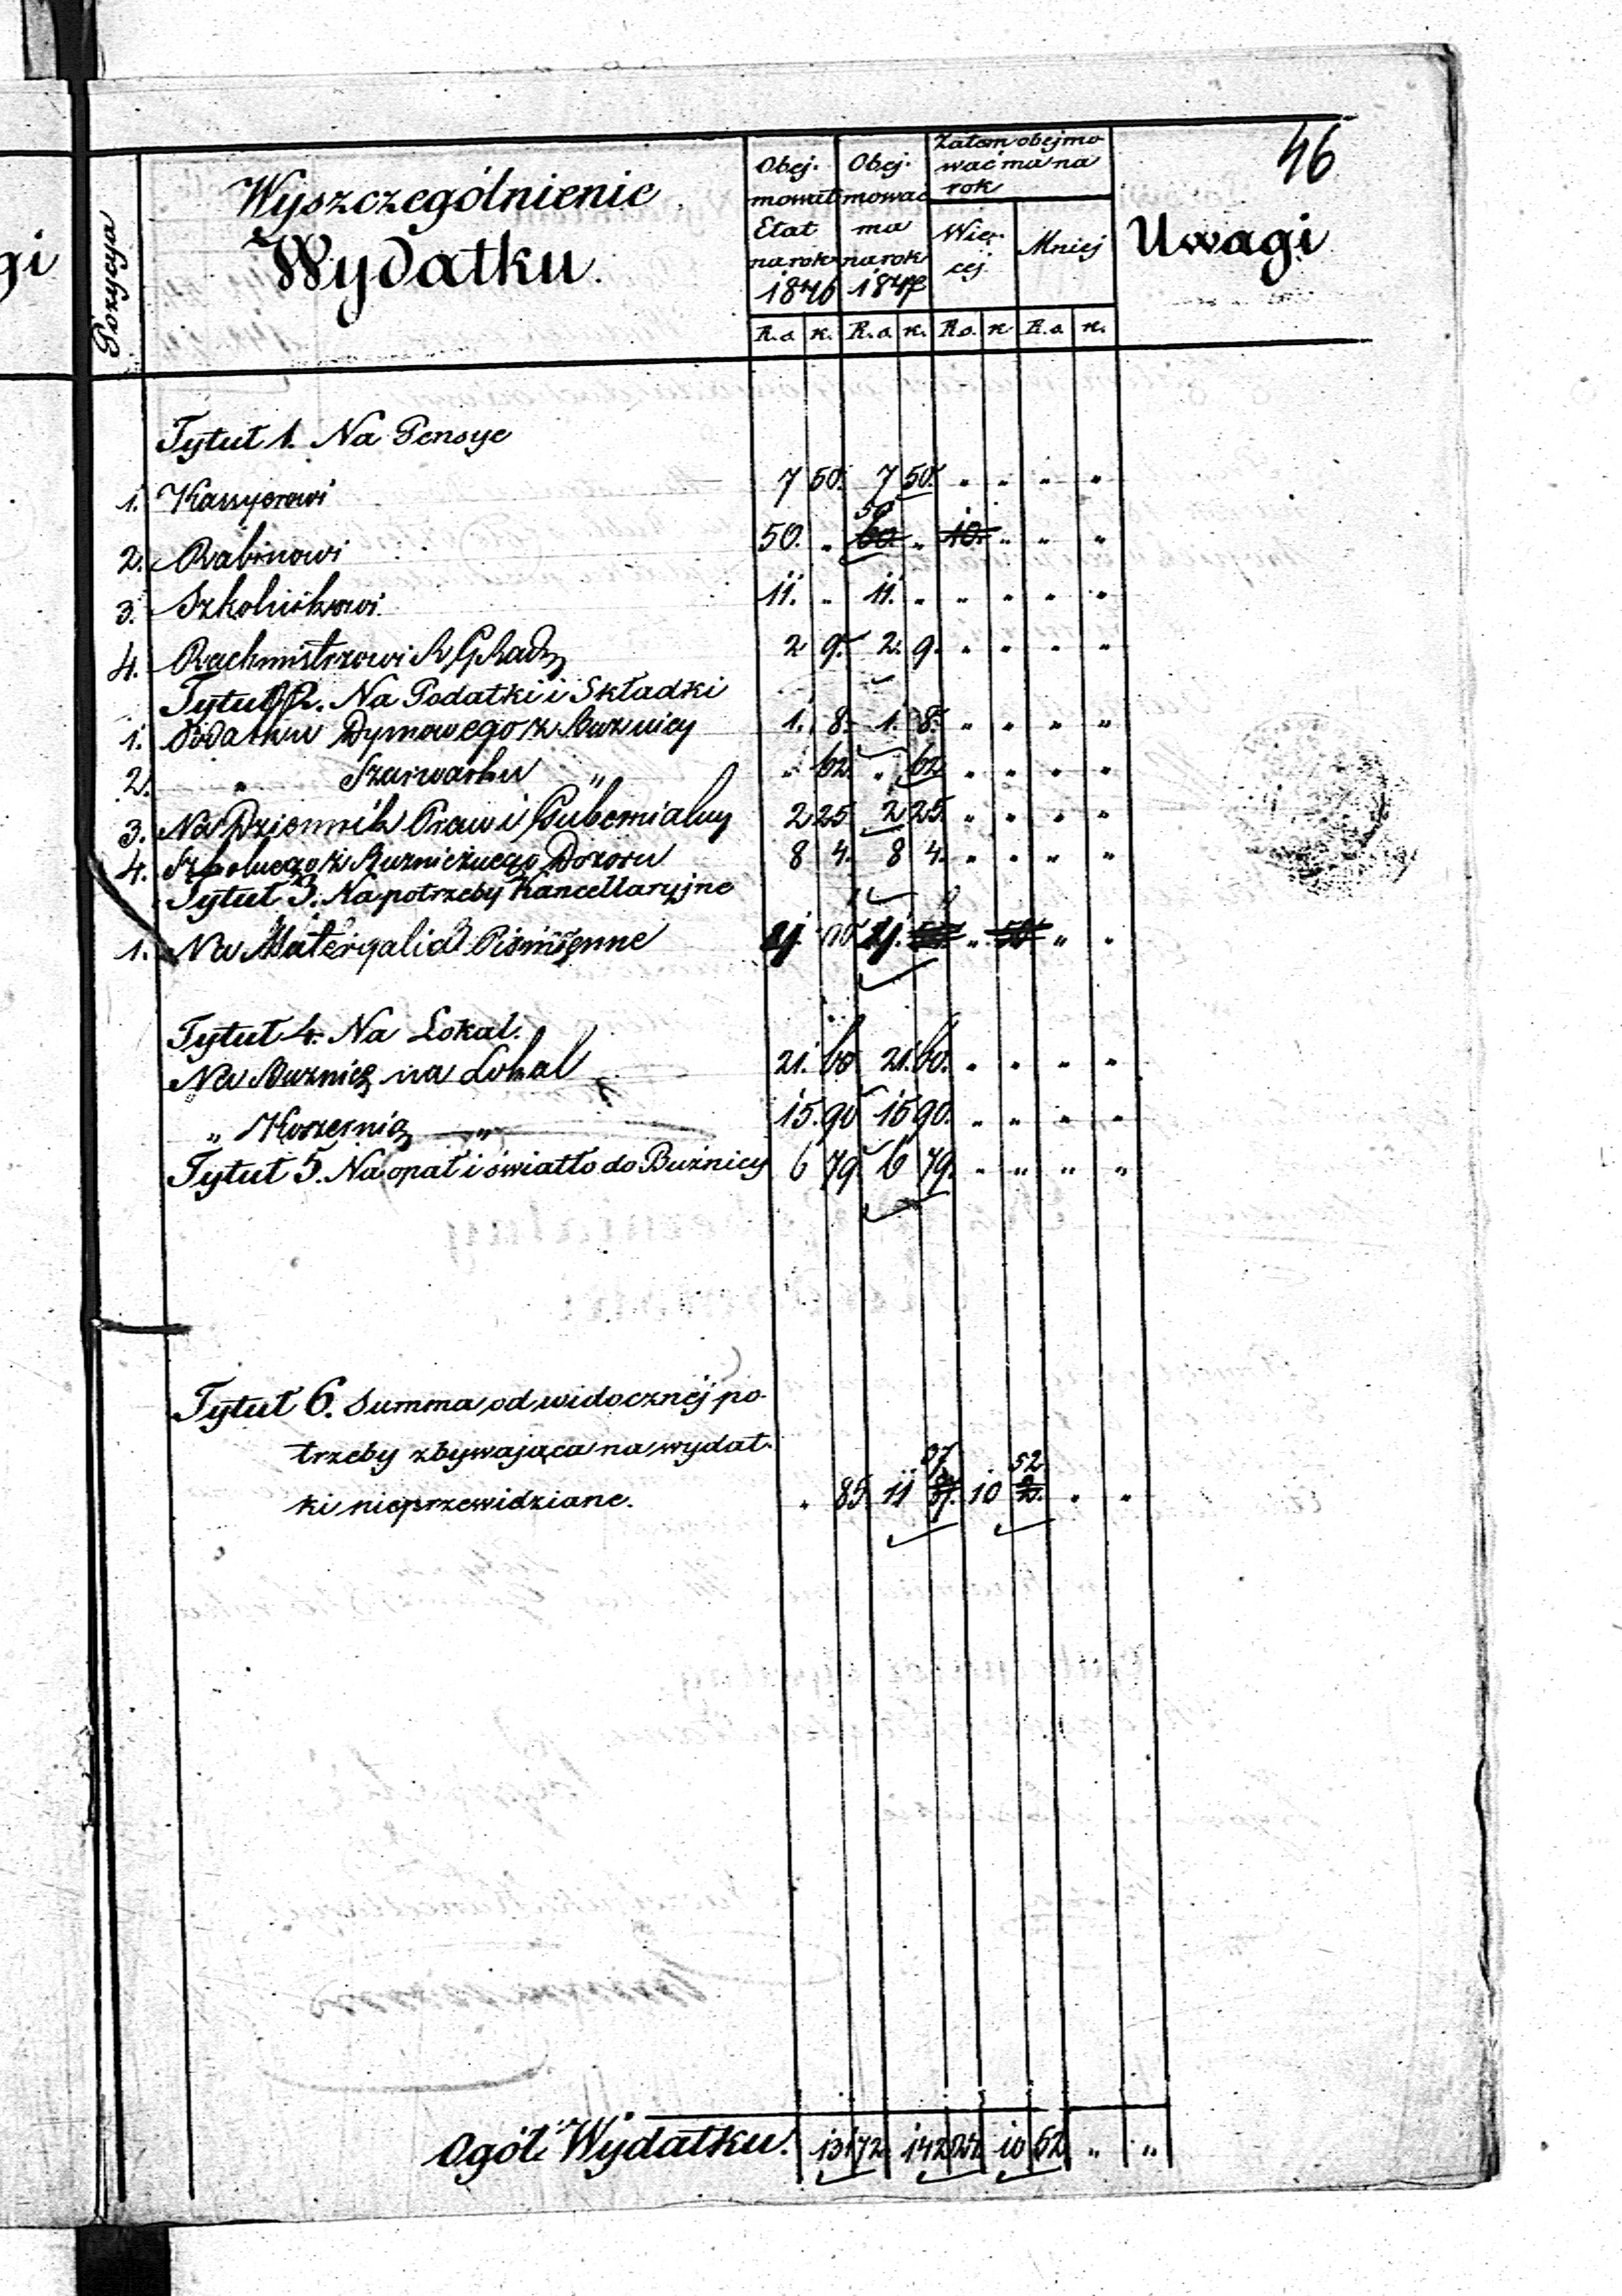 46
gi
Pozycja
Wyszczególnienie
Wydatku.
Obej-
mował
Etat
na rok
1846
Obej-
mować
ma
na rok
184
Zatem obejmo
wać ma na
rok
Wię-
cej
Mniej
Uwagi
R.s. k. R.s. k. R.s. k. R.s. k.
Tytuł 1. Na Pensye
1. Kassyerowi 7 50. 7 50. " " " "
50
2. Rabinowi 50. " 60 " 10. " " "
3. Szkolnikowi 11. " 11. " " " " "
4. Rachmistrzowi 2 9. 2. 9. " " " "
Tytuł 2. Na Podatki i Składki
1. Podatku Dymowego z Buznicy 1. 8. 1. 8. " " " "
2. " Szarwarku " " 62 " 62 " " " "
3. Na Dziennik Praw i Gubernialny 2 25 2 25 " " " "
4. Szkolnego z Buznicznego Dozoru 8 4. 8 4. " " " "
Tytuł 3. Na potrzeby Kancellaryjne
1. Na Materyalia Piśmienne
Tytuł 4. Na Lokal.
Na Buznicę na Lokal 21. 60 21. 60. " " " "
" " 15. 90 15 90. " " " "
Tytuł 5. Na opał i światło do Buźnicy 6 79. 6 79. " " " "
Tytuł 6. Summa od widocznej po-
trzeby zbywająca na wydat-
37 52
ki nieprzewidziane. " 85 11 10 " "
Ogół Wydatku. 131 72 142 24 10 52 " "